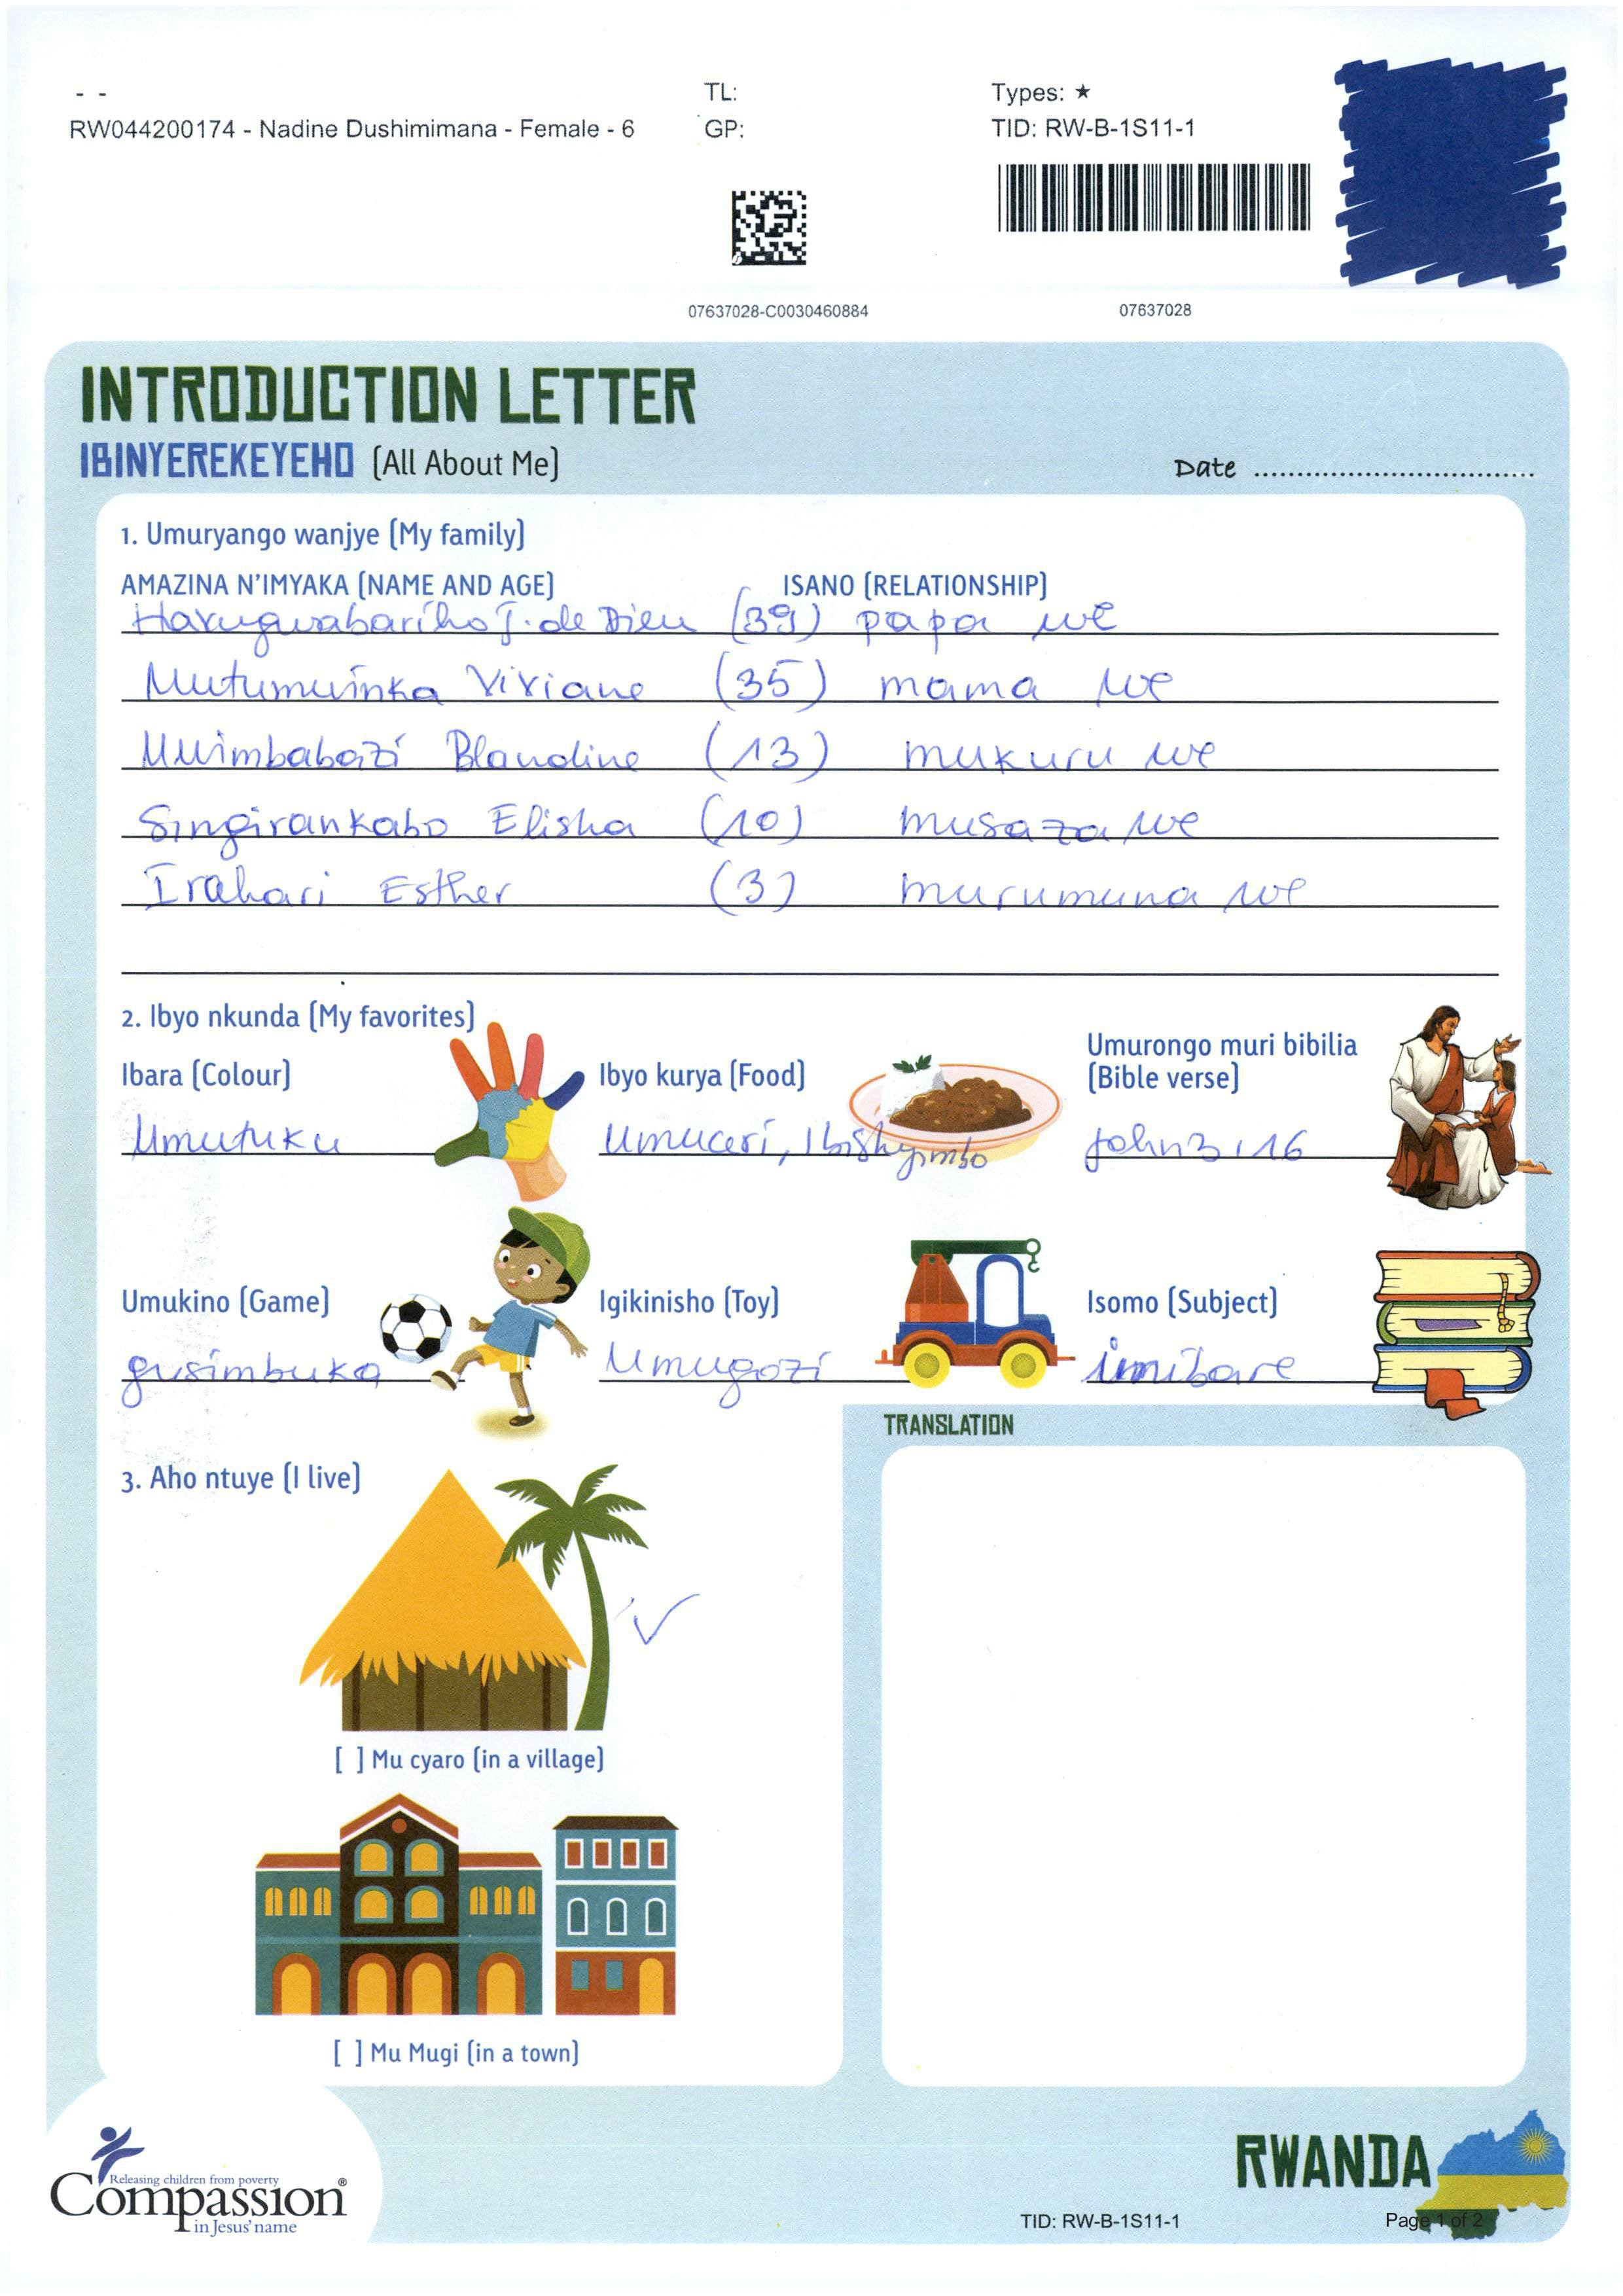 - -
RW044200174 - Nadine Dushimimana - Female - 6
TL:
GP:
Types: ★
TID: RW-B-1S11-1
07637028-C0030460884
07637028
INTRODUCTION LETTER
IBINYEREKEYEHO (All About Me)
Date ................................
1. Umuryango wanjye (My family)
AMAZINA N'IMYAKA (NAME AND AGE) ISANO (RELATIONSHIP)
Harugwabariho J. de Dieu (39) papa we
Mutumwinka Viviane (35) mama we
Mwimbabazi Blandine (13) mukuru we
Singirankabo Elisha (10) musaza we
Irahari Esther (3) murumuna we
2. Ibyo nkunda (My favorites)
Ibara (Colour)
Umutuku
Ibyo kurya (Food)
Umuceri, Ibishyimbo
Umurongo muri bibilia
(Bible verse)
John 3:16
Umukino (Game)
gusimbuka
Igikinisho (Toy)
Umugozi
Isomo (Subject)
imibare
3. Aho ntuye (I live)
[ ] Mu cyaro (in a village)
[ ] Mu Mugi (in a town)
TRANSLATION
Releasing children from poverty
Compassion®
in Jesus' name
RWANDA
TID: RW-B-1S11-1
Page 1 of 2